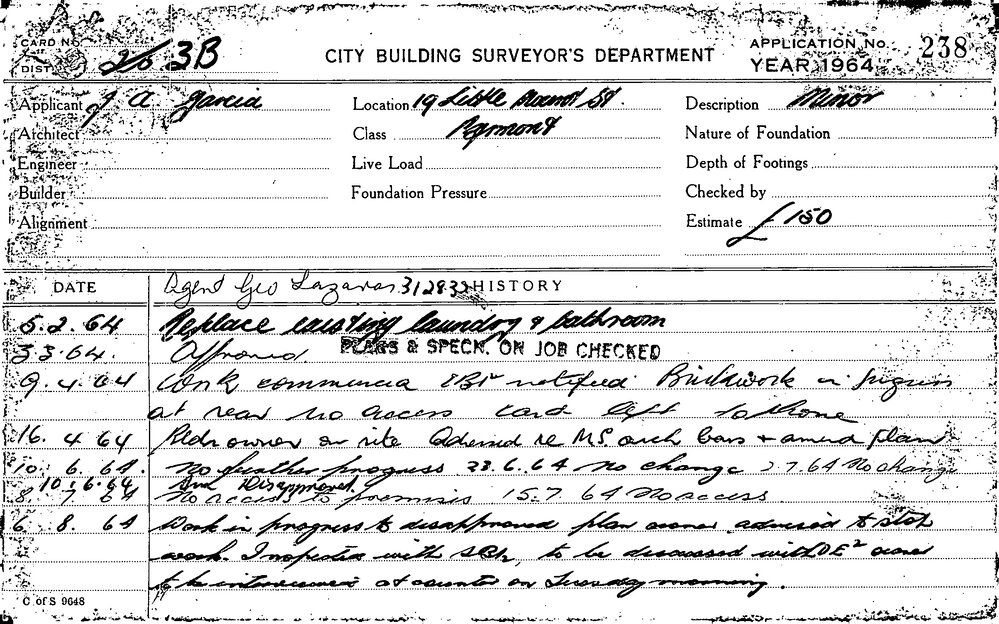 CARD No. 3B
DIST.
CITY BUILDING SURVEYOR'S DEPARTMENT
APPLICATION No. 238
YEAR 1964
Applicant J A. Garcia
Location 19 Little Mount St.
Description Minor
Architect
Class Pyrmont
Nature of Foundation
Engineer
Live Load
Depth of Footings
Builder
Foundation Pressure
Checked by
Alignment
Estimate £ 150
DATE
Agent Geo Lazaras 312833 HISTORY
5.2.64 Replace existing laundry & bathroom
3.3.64. Approved PLANS & SPECN. ON JOB CHECKED
9.4.64 Work commenced notified Brickwork in progress
at rear no access card left to phone
16. 4 64 Bldr owner on site Advised re M.S. arch bars + amend plan
10. 6. 64. no further progress 23.6.64 no change 7.64 No change
10.6.64 Disapproved
8 7 64 No access to premises 15.7.64 No access
6. 8. 64 Work in progress to disapproved plan owner advised to stop
work. Inspected with to be discussed with DE² owner
to be interviewed at counter on Tuesday morning.
C of S 9648